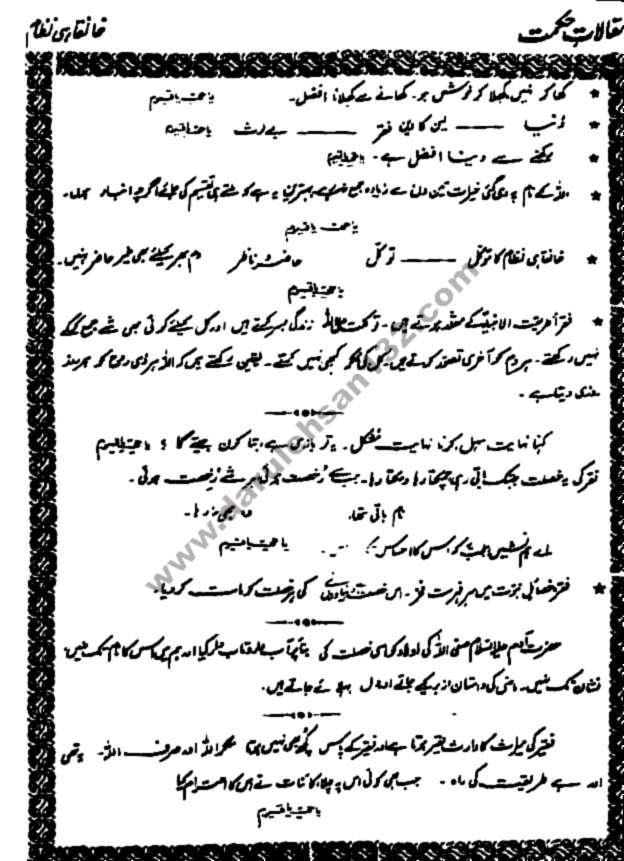 مقالاتِ حکمت
خانقاہی نظام
★ کھا کر نہیں کھلا کر خوش ہو۔ کھانے سے کھلانا افضل۔ یا حی یا قیوم
★ دنیا —— لین کا دین فقر —— بے لوث یا حی یا قیوم
★ رکھنے سے دینا افضل ہے۔ یا حی یا قیوم
★ اللہ کے نام پہ دی گئی خیرات تین دن سے زیادہ جمع نہ رہے بہترین یہ ہے کہ ملتے ہی تقسیم کی جائے اگرچہ انبار ہوں۔
یا حی یا قیوم
★ خانقاہی نظام کا توکل —— توکل حاضر و ناظر دم بھر کیلئے بھی غیر حاضر نہیں۔
یا حی یا قیوم
★ فقرا طریقت الانبیاء کے مقلد ہوتے ہیں۔ توکلت علی اللہ زندگی بسر کرتے ہیں اور کل کیلئے کوئی بھی شے جمع کرکے
نہیں رکھتے۔ ہر دم کو آخری تصور کرتے ہیں۔ کل کی فکر کبھی نہیں کرتے۔ یقین رکھتے ہیں کہ اللہ ہر ذی روح کو ہر روز
روزی دیتا ہے۔
کہنا نہایت سہل کرنا نہایت مشکل۔ یہ بازی ہے، بتا کون جیتے گا ؟ یا حی یا قیوم
فقر کی یہ خصلت جب تک باقی رہی چمکتا رہا دمکتا رہا۔ جب سے رخصت ہوئی ہر شے رخصت ہوئی۔
نام باقی تھا، وہ بھی نہ رہا۔
اے ہم نشیں کو جس کا احساس نہیں۔ یا حی یا قیوم
★ فقر خصائل نبوت میں سرفہرست فقر۔ اس خصلت کی ہر خصلت کو مات کر دیا۔
حضرت آدم علیہ السلام صفی اللہ کی اولاد کو اسی خصلت کی بنا پر آب القاب ملا کیا اور ہم میں اس کا نام تک نہیں،
نشان تک نہیں۔ اسی کی داستان ازبر کئے جاتے اور دل بہلائے جاتے ہیں۔
فقیر کی میراث کا وارث فقیر ہوتا ہے اور فقیر کے پاس کچھ بھی نہیں ہوتا مگر اللہ اور صرف اللہ۔ یہ تھی
اور ہے طریقت کی راہ۔ جب بھی کوئی اس پہ چلا، کائنات نے اس کا احترام کیا
یا حی یا قیوم
www.darulehsan132.com